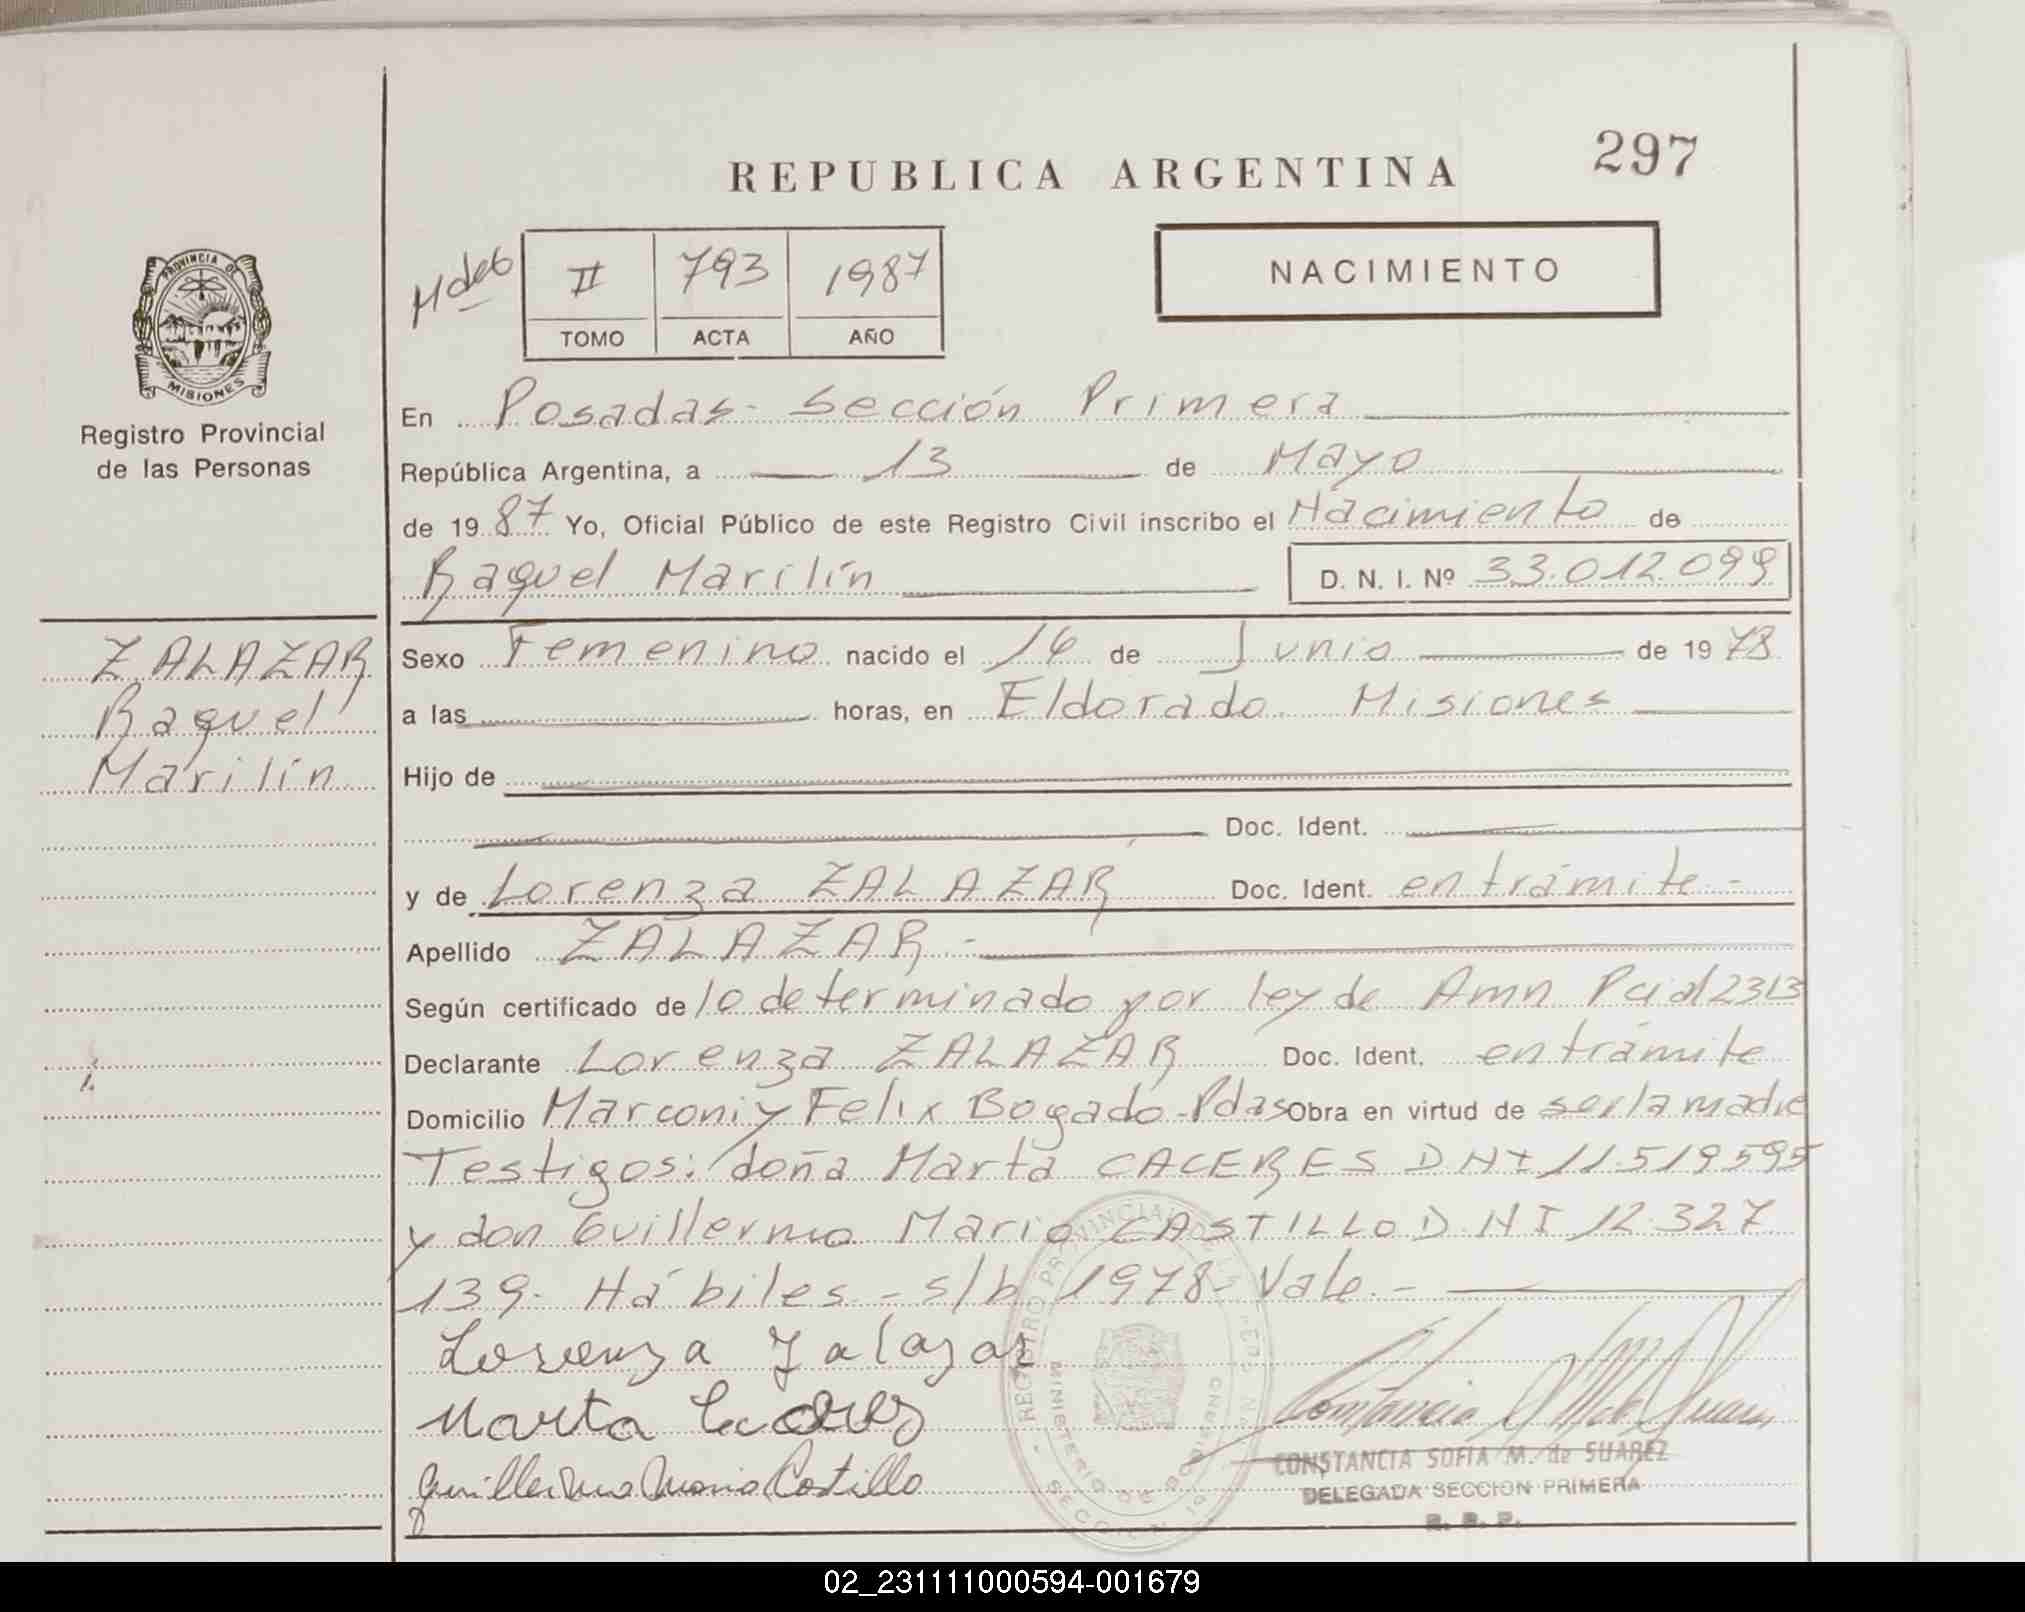 REPUBLICA ARGENTINA
297
II
793
1987
TOMO
ACTA
AÑO
NACIMIENTO
PROVINCIA DE
MISIONES
Registro Provincial
de las Personas
ZALAZAR
Raquel
Marilín
En Posadas - Sección Primera
República Argentina, a 13 de Mayo
de 1987 Yo, Oficial Público de este Registro Civil inscribo el Nacimiento de
Raquel Marilín D. N. I. Nº 33.012.099
Sexo Femenino nacido el 16 de Junio de 1978
a las horas, en Eldorado Misiones
Hijo de
Doc. Ident.
y de Lorenza ZALAZAR Doc. Ident. en trámite -
Apellido ZALAZAR -
Según certificado de lo determinado por ley de Amn Pcial 2313
Declarante Lorenza ZALAZAR Doc. Ident. en trámite
Domicilio Marconi y Felix Bogado - Pdas Obra en virtud de ser la madre
Testigos: doña Marta CACERES DNI 11.519595
y don Guillermo Mario CASTILLO D.N.I 12.327
139 - Hábiles - s/b 1978 - Vale. -
Lorenza Zalazar
Marta Caceres
Guillermo Mario Castillo
CONSTANCIA SOFIA M. de SUAREZ
DELEGADA SECCION PRIMERA
R. P. P.
02_231111000594-001679